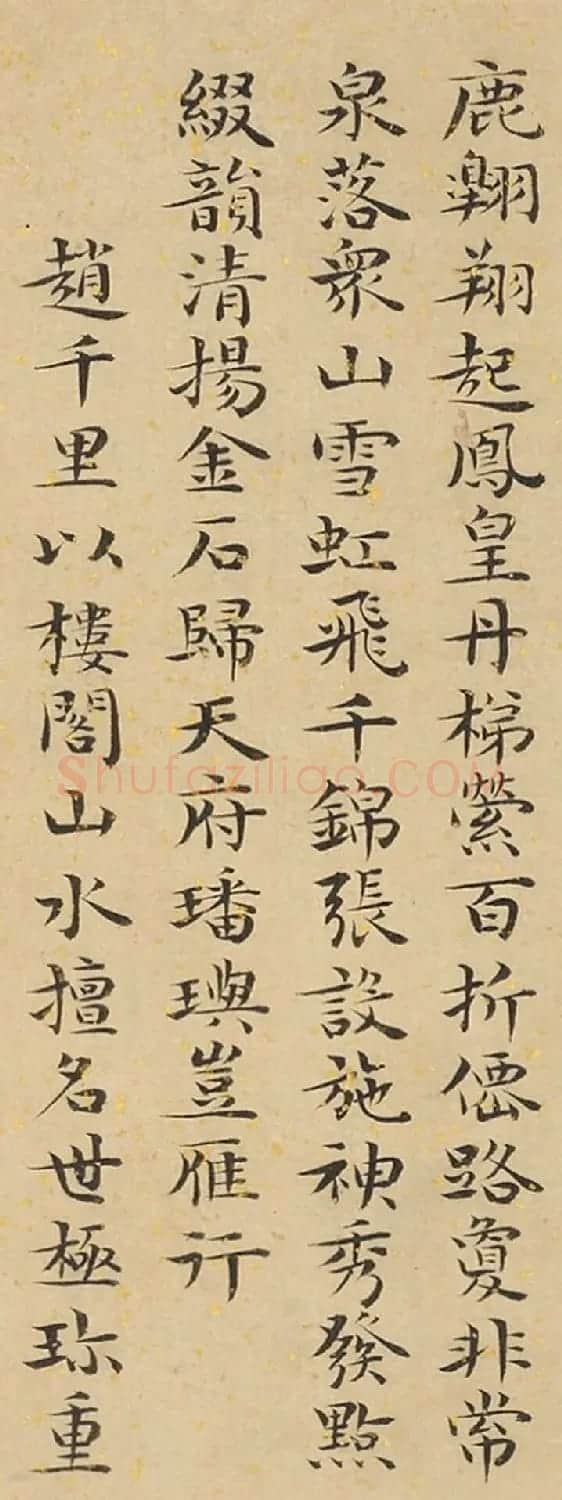 鹿翺翔起鳳皇丹梯縈百折僊路敻非常
泉落衆山雪虹飛千錦張設施神秀發點
綴韻清揚金石歸天府璠璵豈雁行
趙千里以樓閣山水擅名世極珎重
Shufaziliao.com